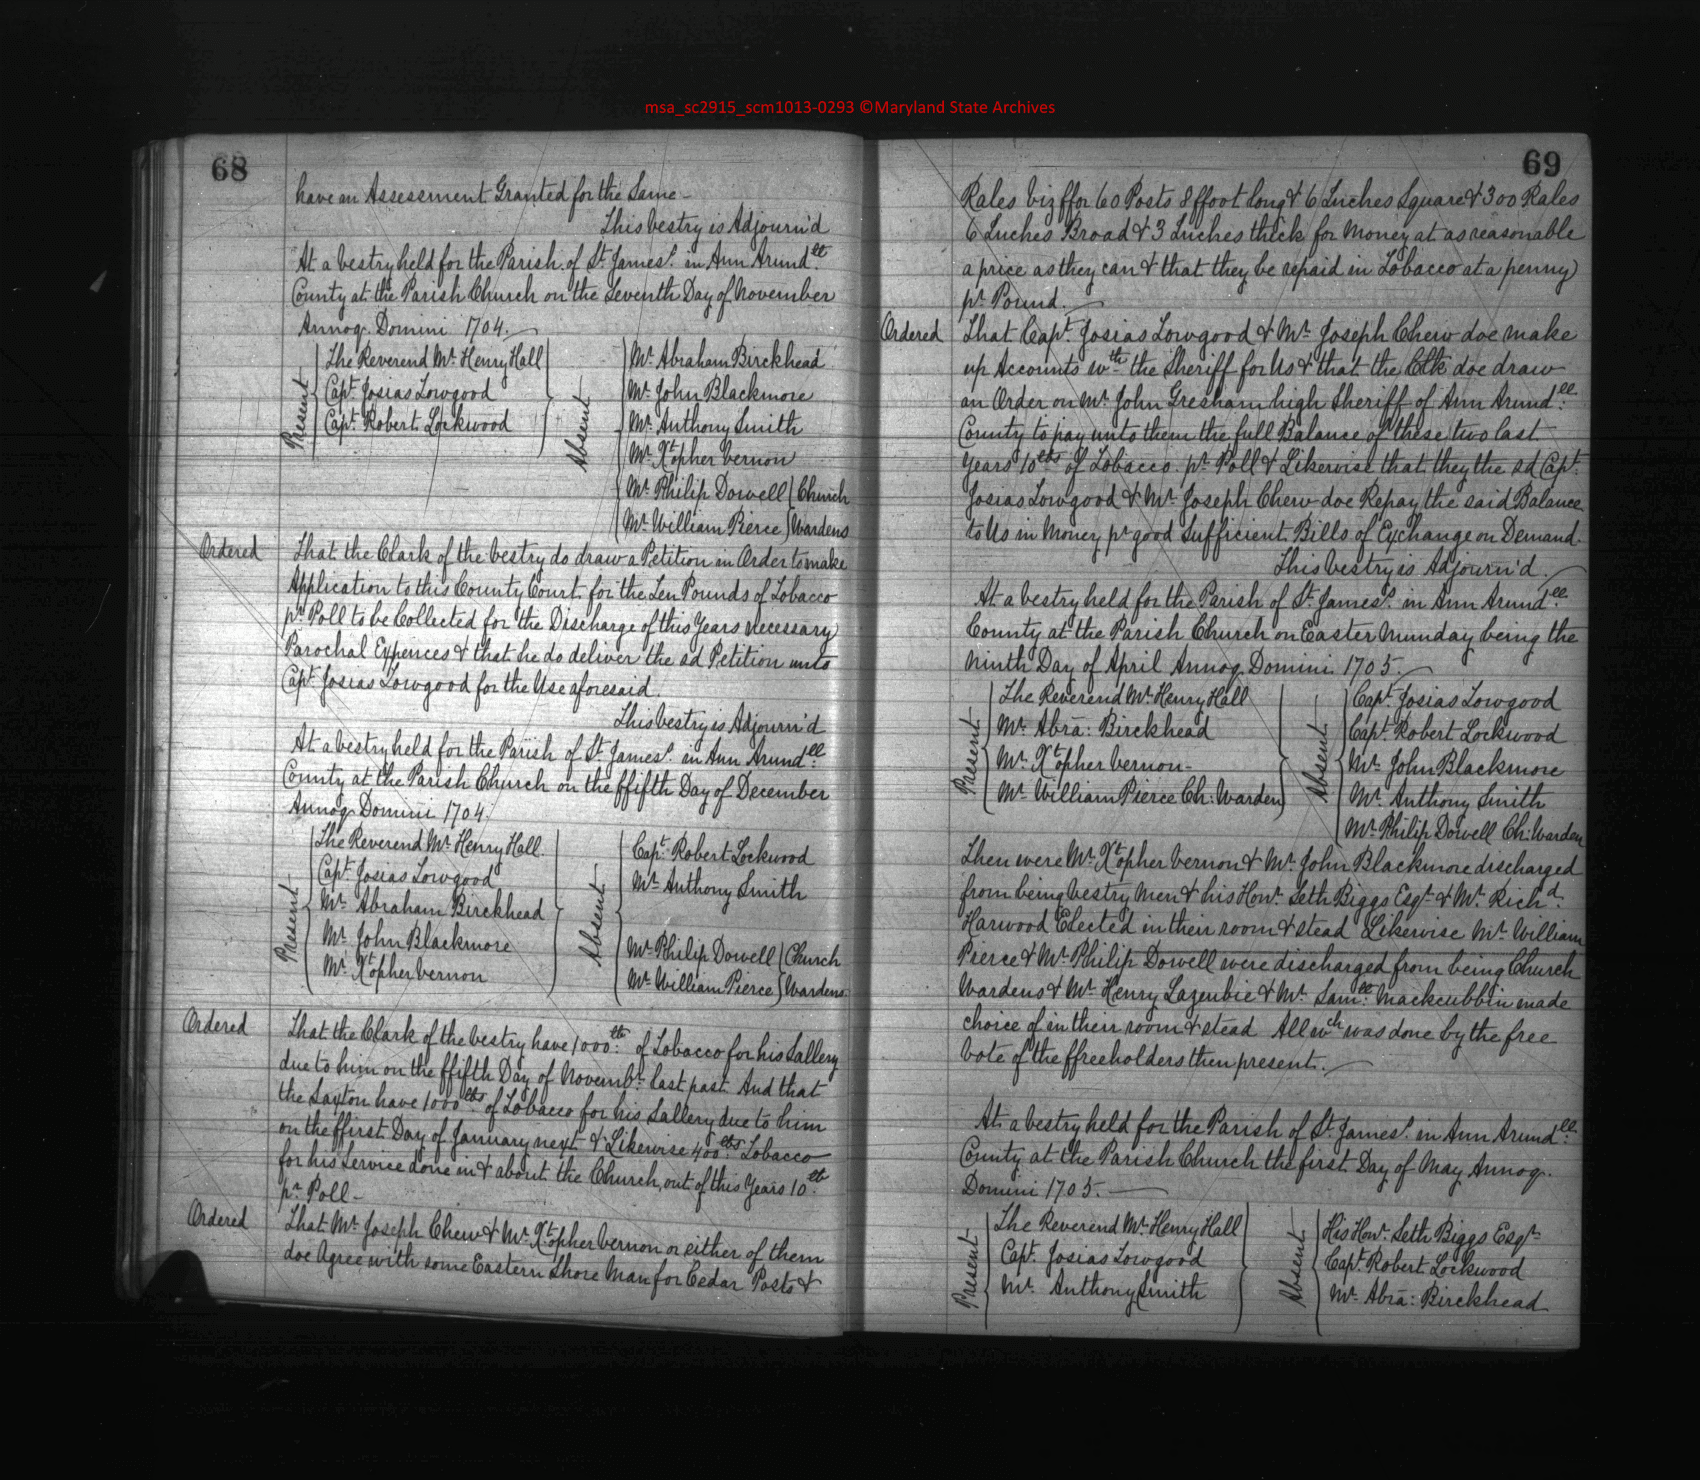 msa_sc2915_scm1013-0293 ©Maryland State Archives
68
have an Assessment Granted for the Same -
This Vestry is Adjourn'd
At a Vestry held for the Parish of St. James's in Ann Arundll.
County at the Parish Church on the Seventh Day of November
Annoq. Domini 1704.
Present
The Reverend Mr. Henry Hall
Capt. Josias Towgood
Capt. Robert Lockwood
Absent
Mr. Abraham Birckhead
Mr. John Blackmore
Mr. Anthony Smith
Mr. Xtopher Vernon
Mr. Philip Dowell } Church
Mr. William Pierce } Wardens
Ordered That the Clark of the Vestry do draw a Petition in Order to make
Application to this County Court for the Ten Pounds of Tobacco
pr. Poll to be Collected for the Discharge of this Years necessary
Parochal Expences & that he do deliver the sd Petition unto
Capt. Josias Towgood for the Use aforesaid.
This Vestry is Adjourn'd
At a Vestry held for the Parish of St. James's in Ann Arundll.
County at the Parish Church on the ffifth Day of December
Annoq. Domini 1704.
Present
The Reverend Mr. Henry Hall.
Capt. Josias Towgood
Mr. Abraham Birckhead
Mr. John Blackmore
Mr. Xtopher Vernon
Absent
Capt. Robert Lockwood
Mr. Anthony Smith
Mr. Philip Dowell } Church
Mr. William Pierce } Wardens
Ordered That the Clark of the Vestry have 1000lb. of Tobacco for his Sallery
due to him on the ffifth Day of Novembr. last past And that
the Saxton have 1000lbs of Tobacco for his Sallery due to him
on the ffirst Day of January next & Likewise 400lbs. Tobacco
for his Service done in & about the Church, out of this Years 10lb.
pr. Poll -
Ordered That Mr. Joseph Chew & Mr. Xtopher Vernon or either of them
doe Agree with some Eastern Shore Man for Cedar Posts &
69
Rales viz ffor 60 Posts 8 ffoot long & 6 Inches Square & 300 Rales
6 Inches Broad & 3 Inches thick for Money at as reasonable
a price as they can & that they be repaid in Tobacco at a penny
pr. Pound.
Ordered That Capt. Josias Towgood & Mr. Joseph Chew doe make
up Accounts wth the Sheriff for Us & that the Clk doe draw
an Order on Mr. John Gresham high Sheriff of Ann Arundll.
County to pay unto them the full Balance of these two last
Years 10lbs of Tobacco pr. Poll & Likewise that they the sd Capt.
Josias Towgood & Mr. Joseph Chew doe Repay the said Balance
to Us in Money pr good Sufficient Bills of Exchange on Demand.
This Vestry is Adjourn'd.
At a Vestry held for the Parish of St. James's in Ann Arundll.
County at the Parish Church on Easter Munday being the
Ninth Day of April Annoq. Domini 1705.
Present
The Reverend Mr. Henry Hall
Mr. Abra: Birckhead
Mr. Xtopher Vernon -
Mr. William Pierce Ch: Warden
Absent
Capt. Josias Towgood
Capt. Robert Lockwood
Mr. John Blackmore
Mr. Anthony Smith
Mr. Philip Dowell Ch: Warden
Then were Mr. Xtopher Vernon & Mr. John Blackmore discharged
from being Vestry Men & his Honr. Seth Biggs Esqr. & Mr. Richd.
Harwood Elected in their room & stead Likewise Mr. William
Pierce & Mr. Philip Dowell were discharged from being Church
Wardens & Mr. Henry Lazenbie & Mr. Samll. Mackcubbin made
choice of in their room & stead All wch was done by the free
Vote of the ffreeholders then present.
At a Vestry held for the Parish of St. James's in Ann Arundll.
County at the Parish Church the first Day of May Annoq.
Domini 1705.
Present
The Reverend Mr. Henry Hall
Capt. Josias Towgood
Mr. Anthony Smith
Absent
His Honr. Seth Biggs Esqr.
Capt. Robert Lockwood
Mr. Abra: Birckhead